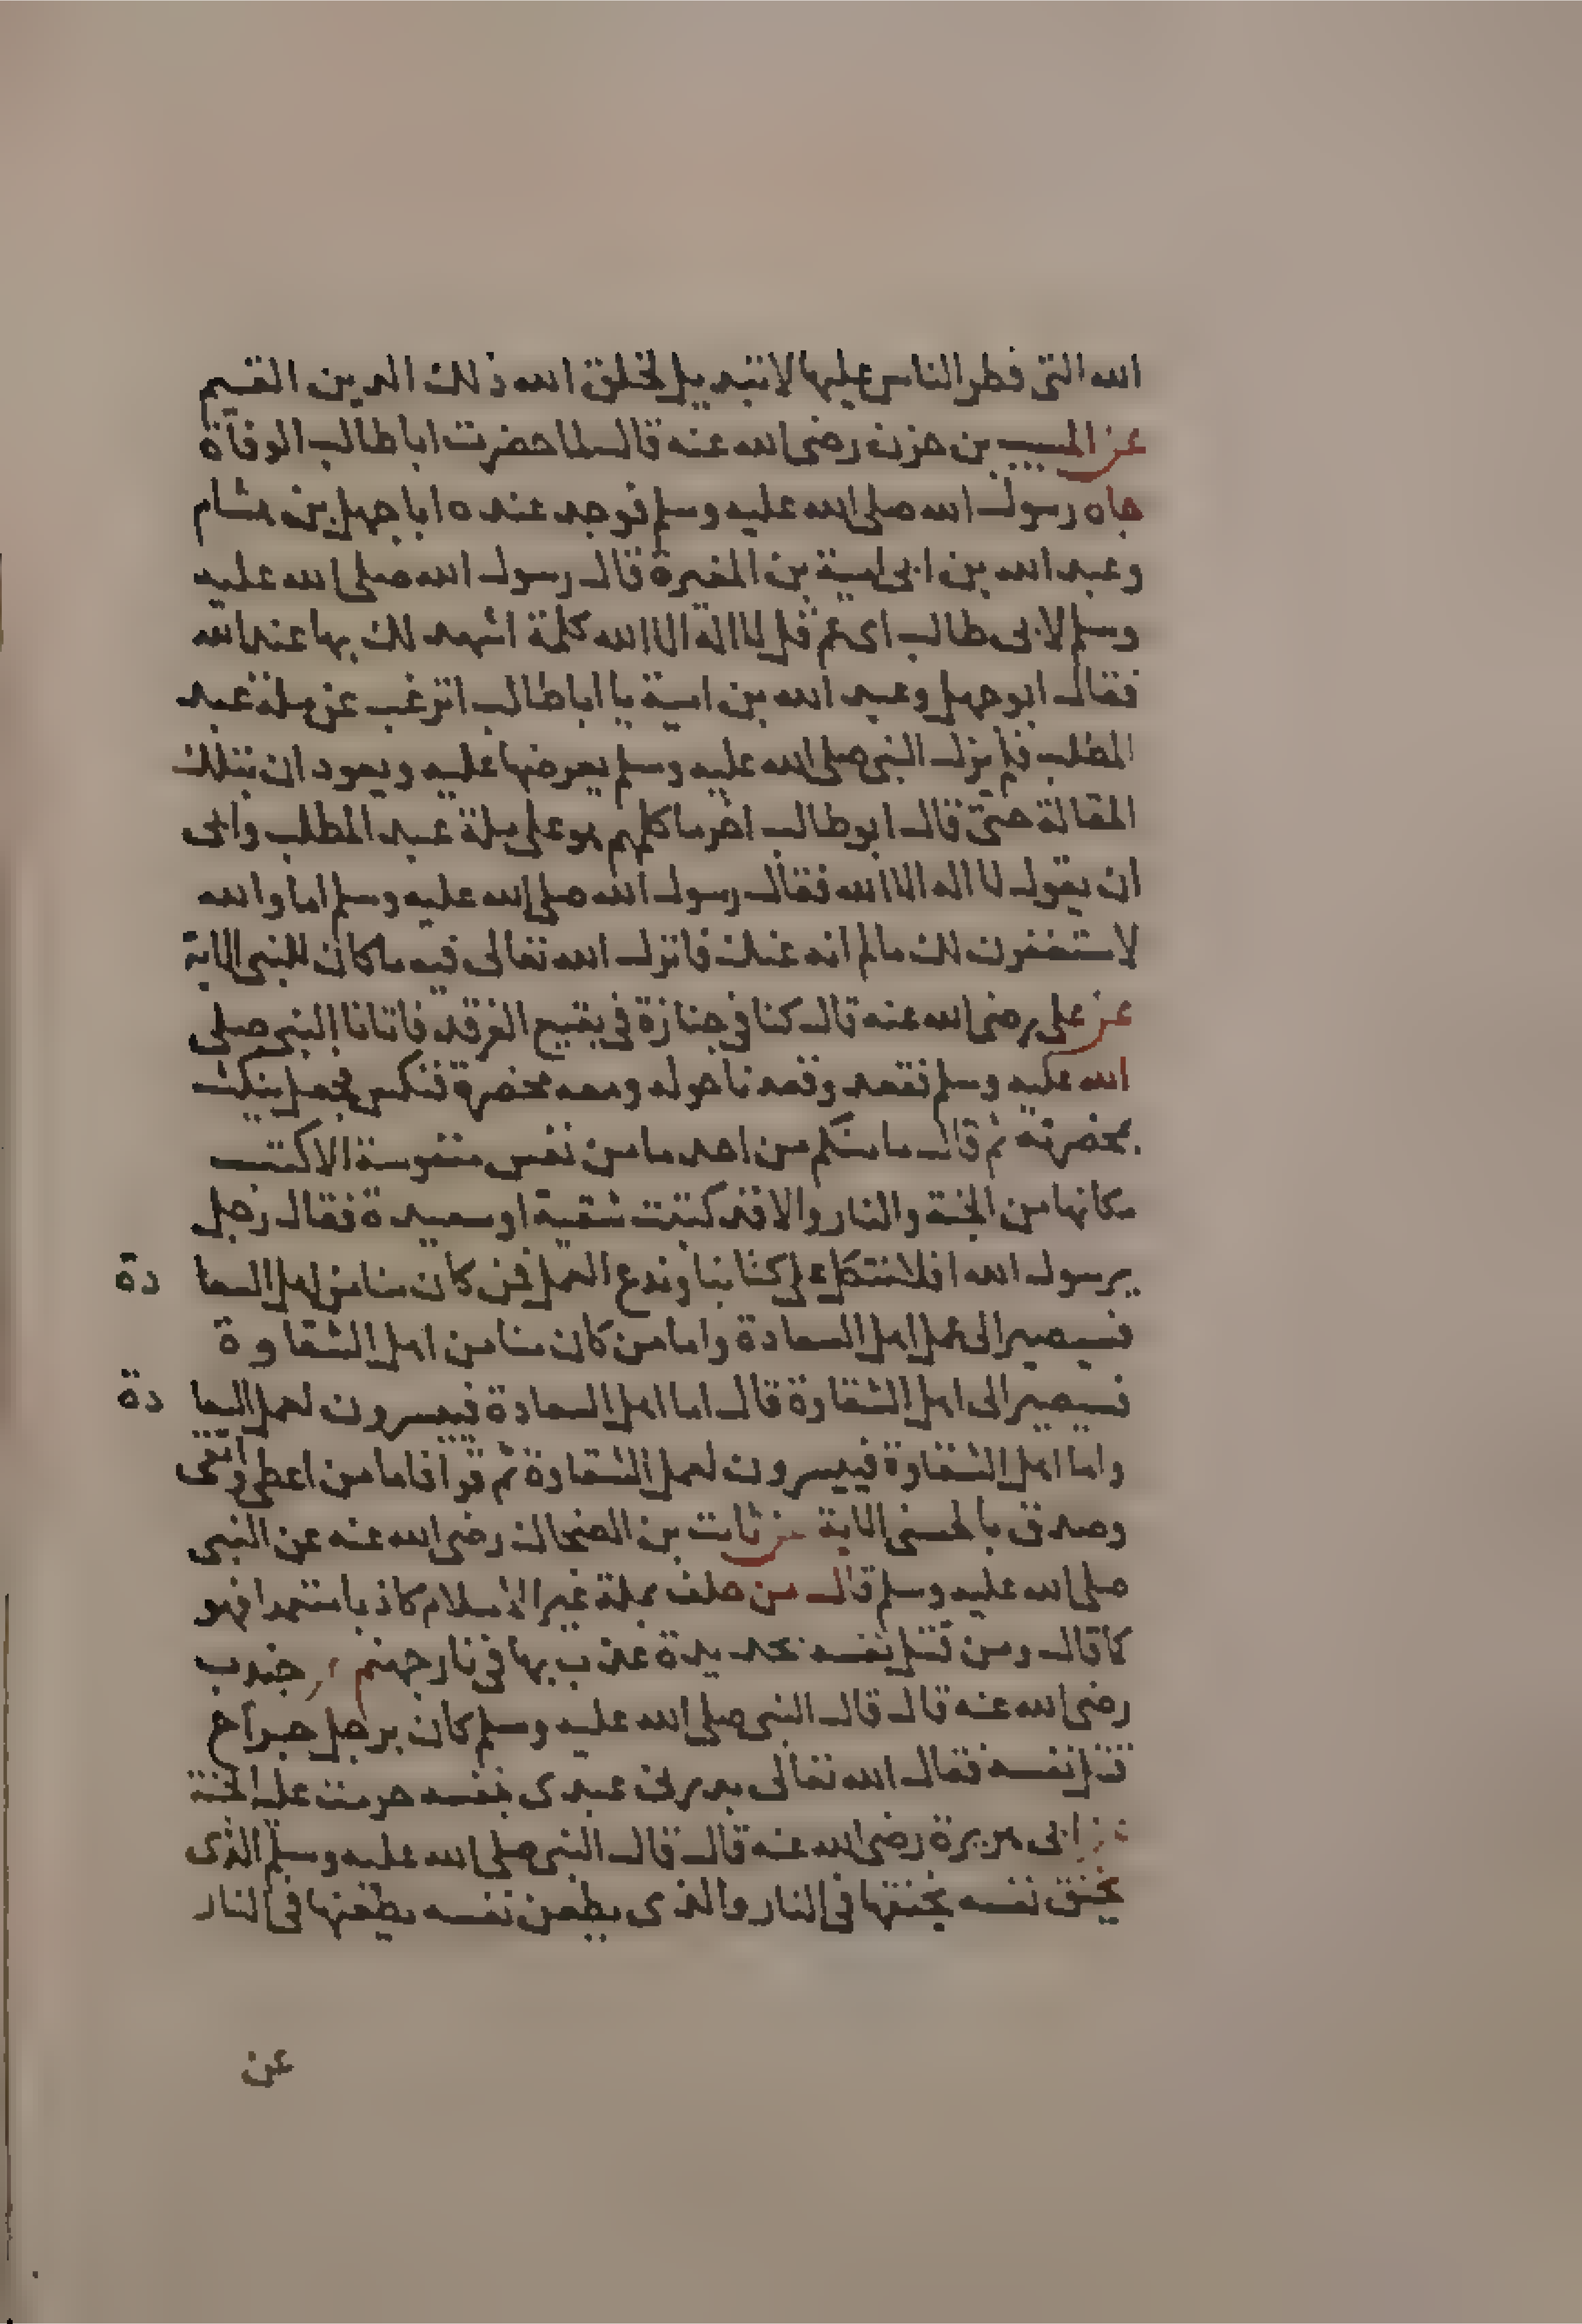 الله التى فطر الناس عليها لا تبديل لخلق الله ذلك الدين القيم
عن المسيب بن حزن رضى الله عنه قال لما حضرت ابا طالب الوفاة
جاه رسول الله صلى الله عليه وسلم فوجد عنده ابا جهل بن هشام
وعبد الله بن ابى امية بن المغيرة قال رسول الله صلى الله عليه
وسلم لابى طالب اى عم قل لا اله الا الله كلمة اشهد لك بها عند الله
فقال ابو جهل وعبد الله بن امية يا ابا طالب اترغب عن ملة عبد
المطلب فلم يزل النبى صلى الله عليه وسلم يعرضها عليه ويعود ان بتلك
المقالة حتى قال ابو طالب اخر ما كلمهم هو على ملة عبد المطلب وابى
ان يقول لا اله الا الله فقال رسول الله صلى الله عليه وسلم اما والله
لاستغفرن لك مالم انه عنك فانزل الله تعالى فيه ما كان للنبى الاية
عن على رضى الله عنه قال كنا فى جنازة فى بقيع الغرقد فاتانا النبى صلى
الله عليه وسلم فقعد وقعدنا حوله ومعه مخصرة فنكس فجعل ينكت
بمخصرته ثم قال ما منكم من احد ما من نفس منفوسة الا كتب
مكانها من الجنة والنار والا قد كتبت شقية او سعيدة فقال رجل
يرسول الله افلا نتكل على كتابنا وندع العمل فمن كان منا من اهل السعا دة
فسيصير الى عمل اهل السعادة واما من كان منا من اهل الشقاوة
فسيصير الى اهل الشقاوة قال اما اهل السعادة فييسرون لعمل السعا دة
واما اهل الشقاوة فييسرون لعمل الشقاوة ثم قرا فاما من اعطى واتقى
وصدق بالحسنى الاية عن ثابت بن الضحاك رضى الله عنه عن النبى
صلى الله عليه وسلم قال من حلف بملة غير الاسلام كاذبا متعمدا فهو
كما قال ومن قتل نفسه بحديدة عذب بها فى نار جهنم جندب
رضى الله عنه قال قال النبى صلى الله عليه وسلم كان برجل جراح
قتل نفسه فقال الله تعالى بدرنى عبدى بنفسه حرمت عليه الجنة
عن ابى هريرة رضى الله عنه قال قال النبى صلى الله عليه وسلم الذى
يخنق نفسه يخنقها فى النار والذى يطعن نفسه يطعنها فى النار
عن